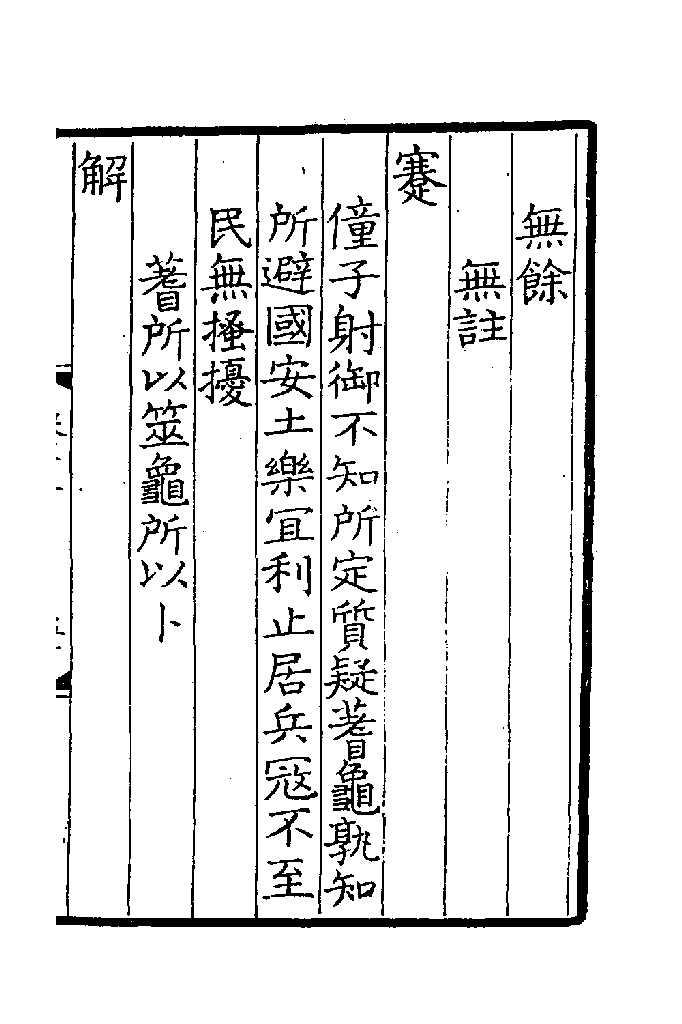 無餘
無註
蹇
僮子射御不知所定質疑蓍龜孰知
所避國安土樂宜利止居兵寇不至
民無搔擾
蓍所以筮龜所以卜
解